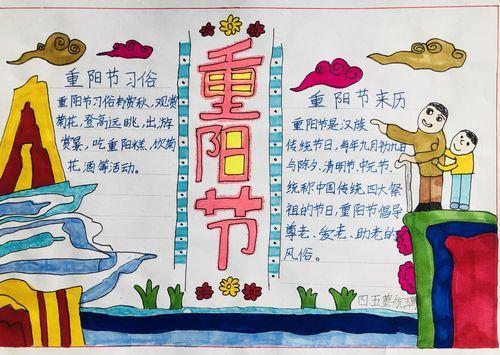 重阳节
重阳节习俗
重阳节习俗有赏秋、观赏
菊花,登高远眺,出游
赏景、吃重阳糕、饮菊
花酒等活动。
重阳节来历
重阳节是汉族
传统节日,每年九月初九日
与除夕、清明节、中元节、
统称中国传统四大祭
祖的节日,重阳节倡导
尊老、爱老、助老的
风俗。
四五董